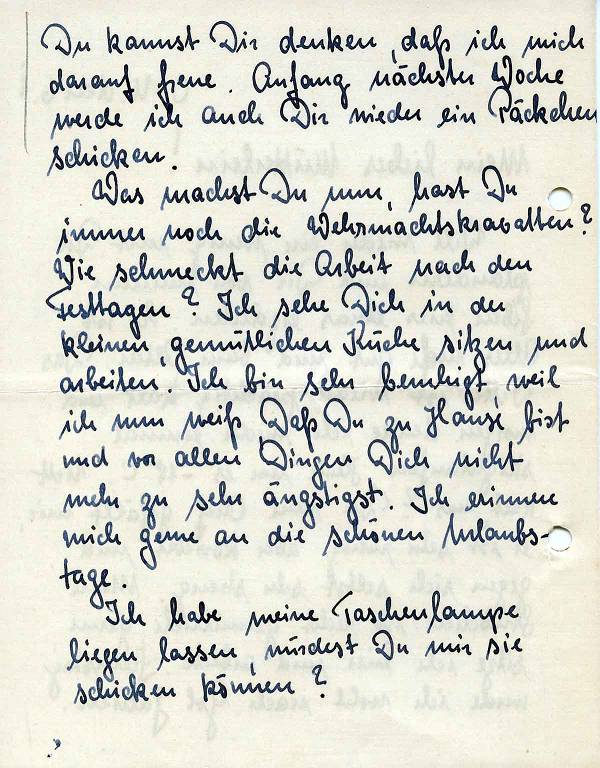 Du kannst Dir denken, daß ich mich
darauf freue. Anfang nächster Woche
werde ich auch Dir wieder ein Päckchen
schicken.
Was machst Du nun, hast Du
immer noch die Wehrmachtskrawatten?
Wie schmeckt die Arbeit nach den
Festtagen? Ich sehe Dich in der
kleinen, gemütlichen Küche sitzen und
arbeiten. Ich bin sehr beruhigt, weil
ich nun weiß, Daß Du zu Hause bist
und vor allen Dingen Dich nicht
mehr zu sehr ängstigst. Ich erinnere
mich gerne an die schönen Urlaubs-
tage.
Ich habe meine Taschenlampe
liegen lassen, würdest Du mir sie
schicken können?